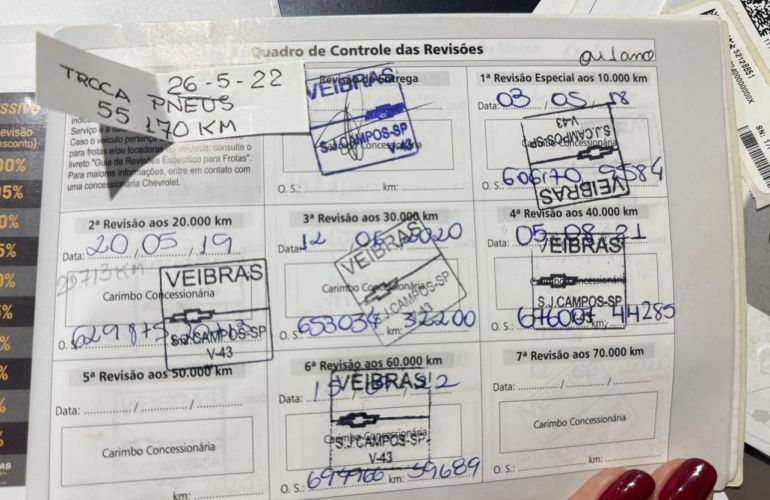 Quadro de Controle das Revisões
TROCA
55
26-5-22
PNEUS
170 KM
Serviço e a
Caso o veículo pertença
para frotas e/ou locadoras
livreto "Guia de Revisões Específico para Frotas".
Para maiores informações, entre em contato com
uma concessionária Chevrolet.
Revisão de Entrega
VEIBRAS
S.J.CAMPOS-SP
V-43
Carimbo Concessionária
O. S.: km:
1ª Revisão Especial aos 10.000 km
Data: 03 / 05 / 18
V-43
S.J.CAMPOS-SP
Carimbo Concessionária
606170 9584
VEIBRAS
2ª Revisão aos 20.000 km
Data: 20 / 05 / 19
20713 KM
VEIBRAS
Carimbo Concessionária
O. S. 629875 20713
S.J.CAMPOS-SP
V-43
3ª Revisão aos 30.000 km
Data: 12 05 2020
VEIBRAS
Carimbo Concessionária
S.J.CAMPOS-SP
V-43
O. S.: 653034 km: 32200
4ª Revisão aos 40.000 km
Data: 05 08 21
VEIBRAS
Carimbo Concessionária
S.J.CAMPOS-SP
O. S.: km: 44285
V-43
5ª Revisão aos 50.000 km
Data: / /
Carimbo Concessionária
km:
6ª Revisão aos 60.000 km
Data: 22
VEIBRAS
Carimbo Concessionária
S.J.CAMPOS-SP
V-43
O. S.: km: 59689
7ª Revisão aos 70.000 km
Data: / /
Carimbo Concessionária
O. S.: km: